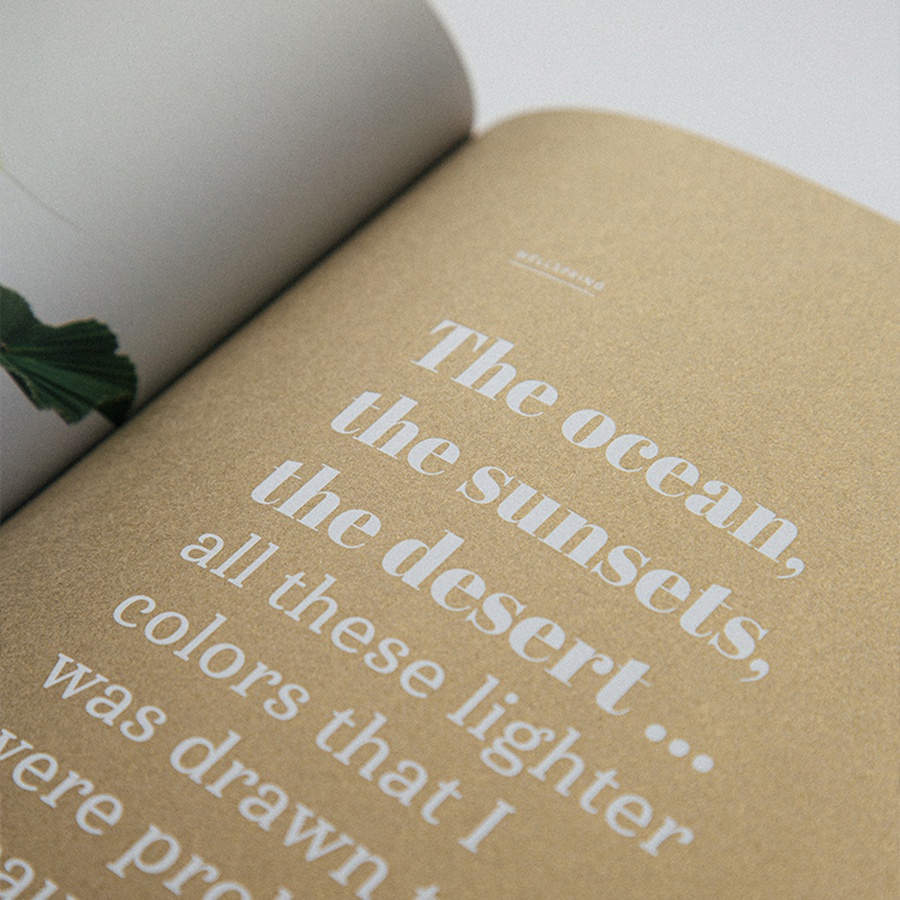 WELLSPRING
The ocean,
the sunsets,
the desert ...
all these lighter
colors that I
was drawn
were